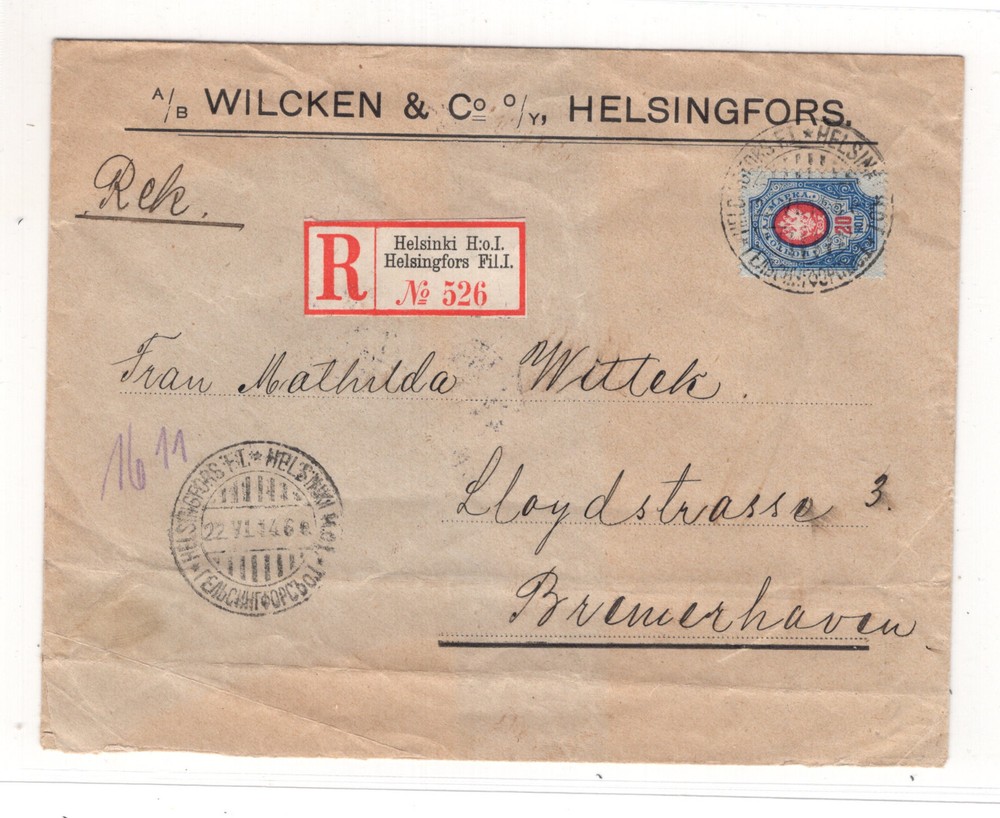 A/B WILCKEN & Co O/Y, HELSINGFORS.
Rek.
R
Helsinki H:o.I.
Helsingfors Fil.I.
No 526
HELSINGFORS F.I. * HELSINKI
20
КОП
МАРКА
Frau Mathilda Wittek.
16 11
Lloydstrasse 3.
HELSINGFORS F.I. * HELSINKI H:o I.
22.VI.14.6 e.
ГЕЛЬСИНГФОРСЪ O.I
Bremerhaven